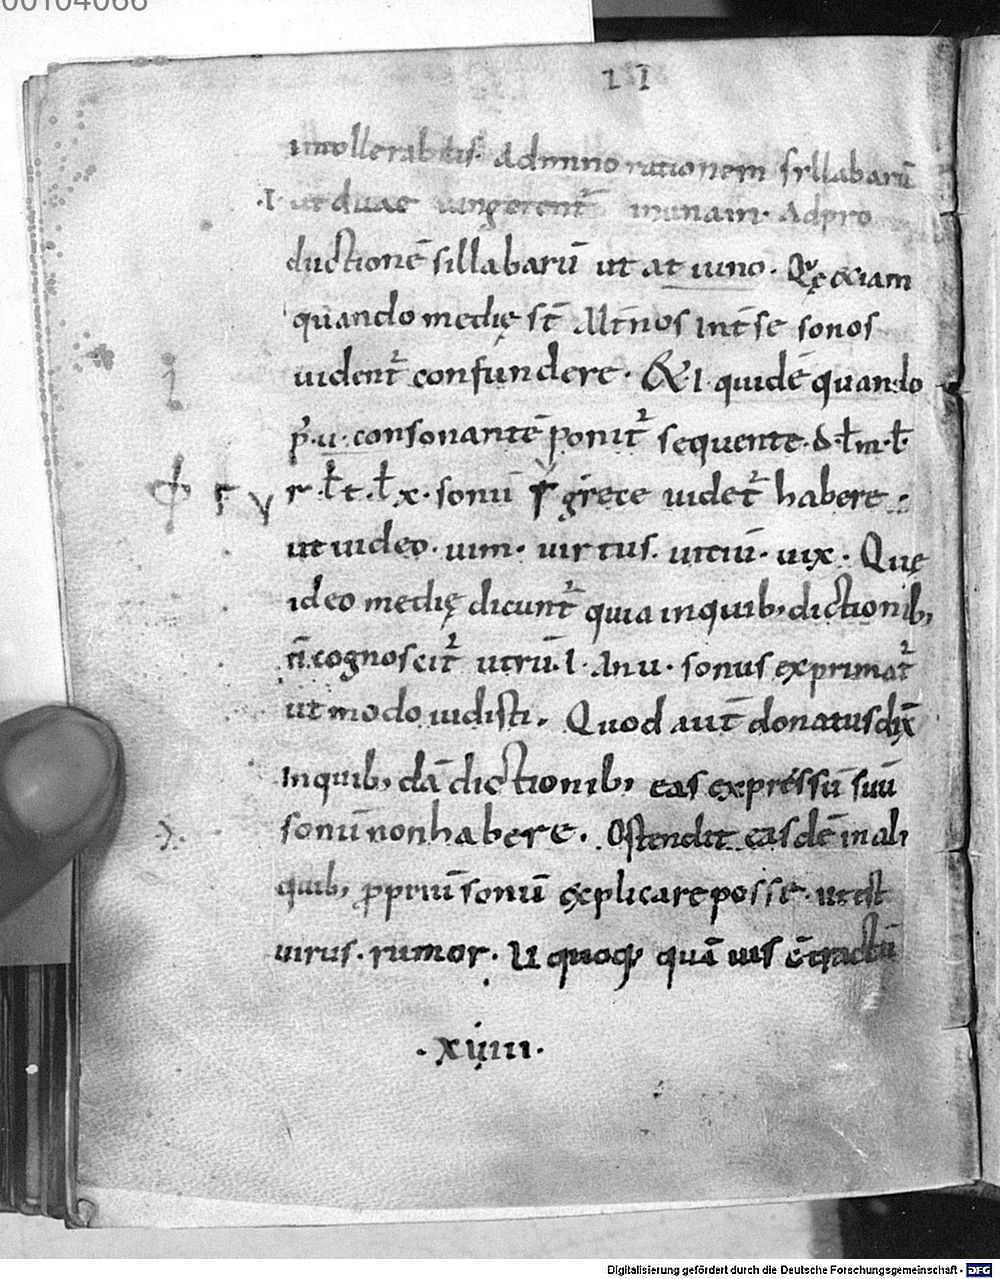 00104066
intollerabilis. Adminorationem syllabarū
.I ut duae iungerent᷑ in unam. Adpro
ductionē sillabarū ut at iuno. Quę & iam
quando medię st̄ Alt̄nos int̄ se sonos
uident᷑ confundere. & I. quidē quando
p̄.u. consonantē ponit᷑ sequente.d.ł m.ł
r.ł t.ł x. sonū y grece uidet᷑ habere.
ut uideo. uim. uirtus. uitiū. uix. Quę
ideo medię dicunt᷑ quia inquib; dictionib;
n̄ cognoscit᷑ utrū.I. An u. sonus exprimat᷑
ut modo uidisti. Quod aut̄ donatus dix̄
Inquib; dā dictionib; eas expressū suū
sonū non habere. Ostendit easdē in ali
quib; ꝓpriū sonū explicare posse. ut est
uirus. rumor. U quoq; quā uis c̄tractū
.xiiii.
Digitalisierung gefördert durch die Deutsche Forschungsgemeinschaft - DFG